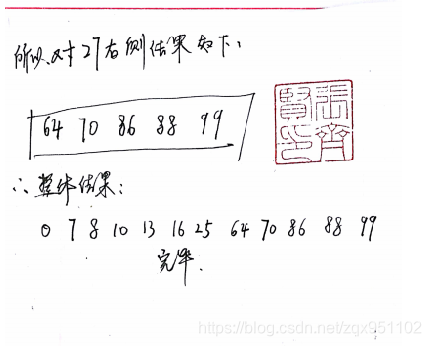 所以，对于27右侧结果如下：
64 70 86 88 99
∴整体结果：
0 7 8 10 13 16 25 64 70 86 88 99
完毕.
https://blog.csdn.net/zqx951102